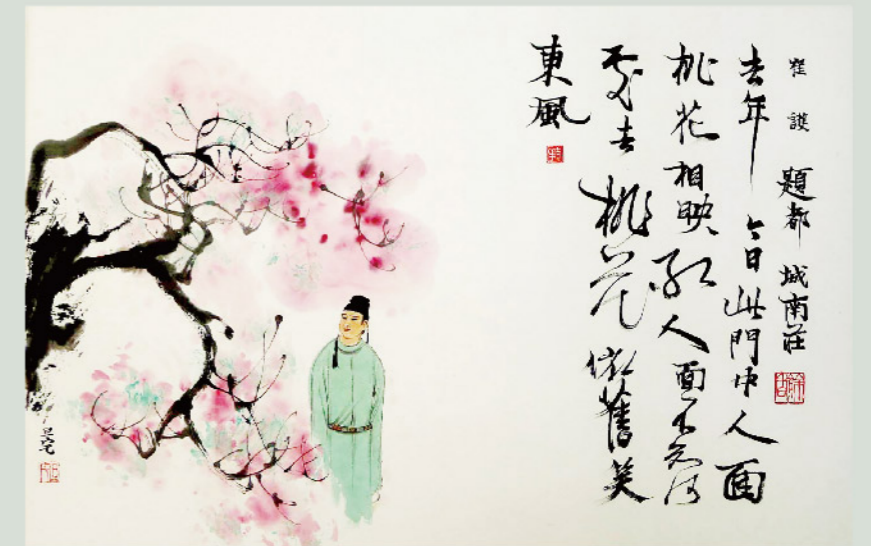 崔護 題都城南莊
去年今日此門中人面
桃花相映紅人面不知何
處去桃花依舊笑
東風